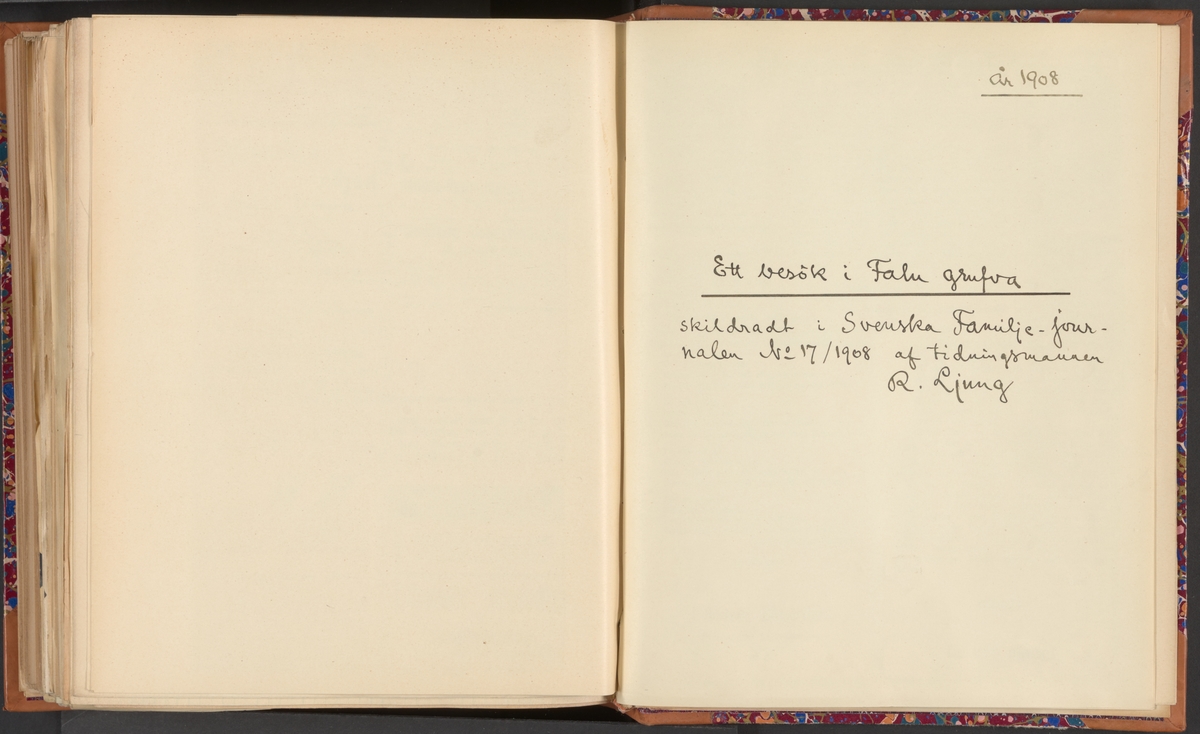 år 1908
Ett besök i Falu grufva
skildradt i Svenska Familje-jour-
nalen No 17/1908 af tidningsmannen
R. Ljung